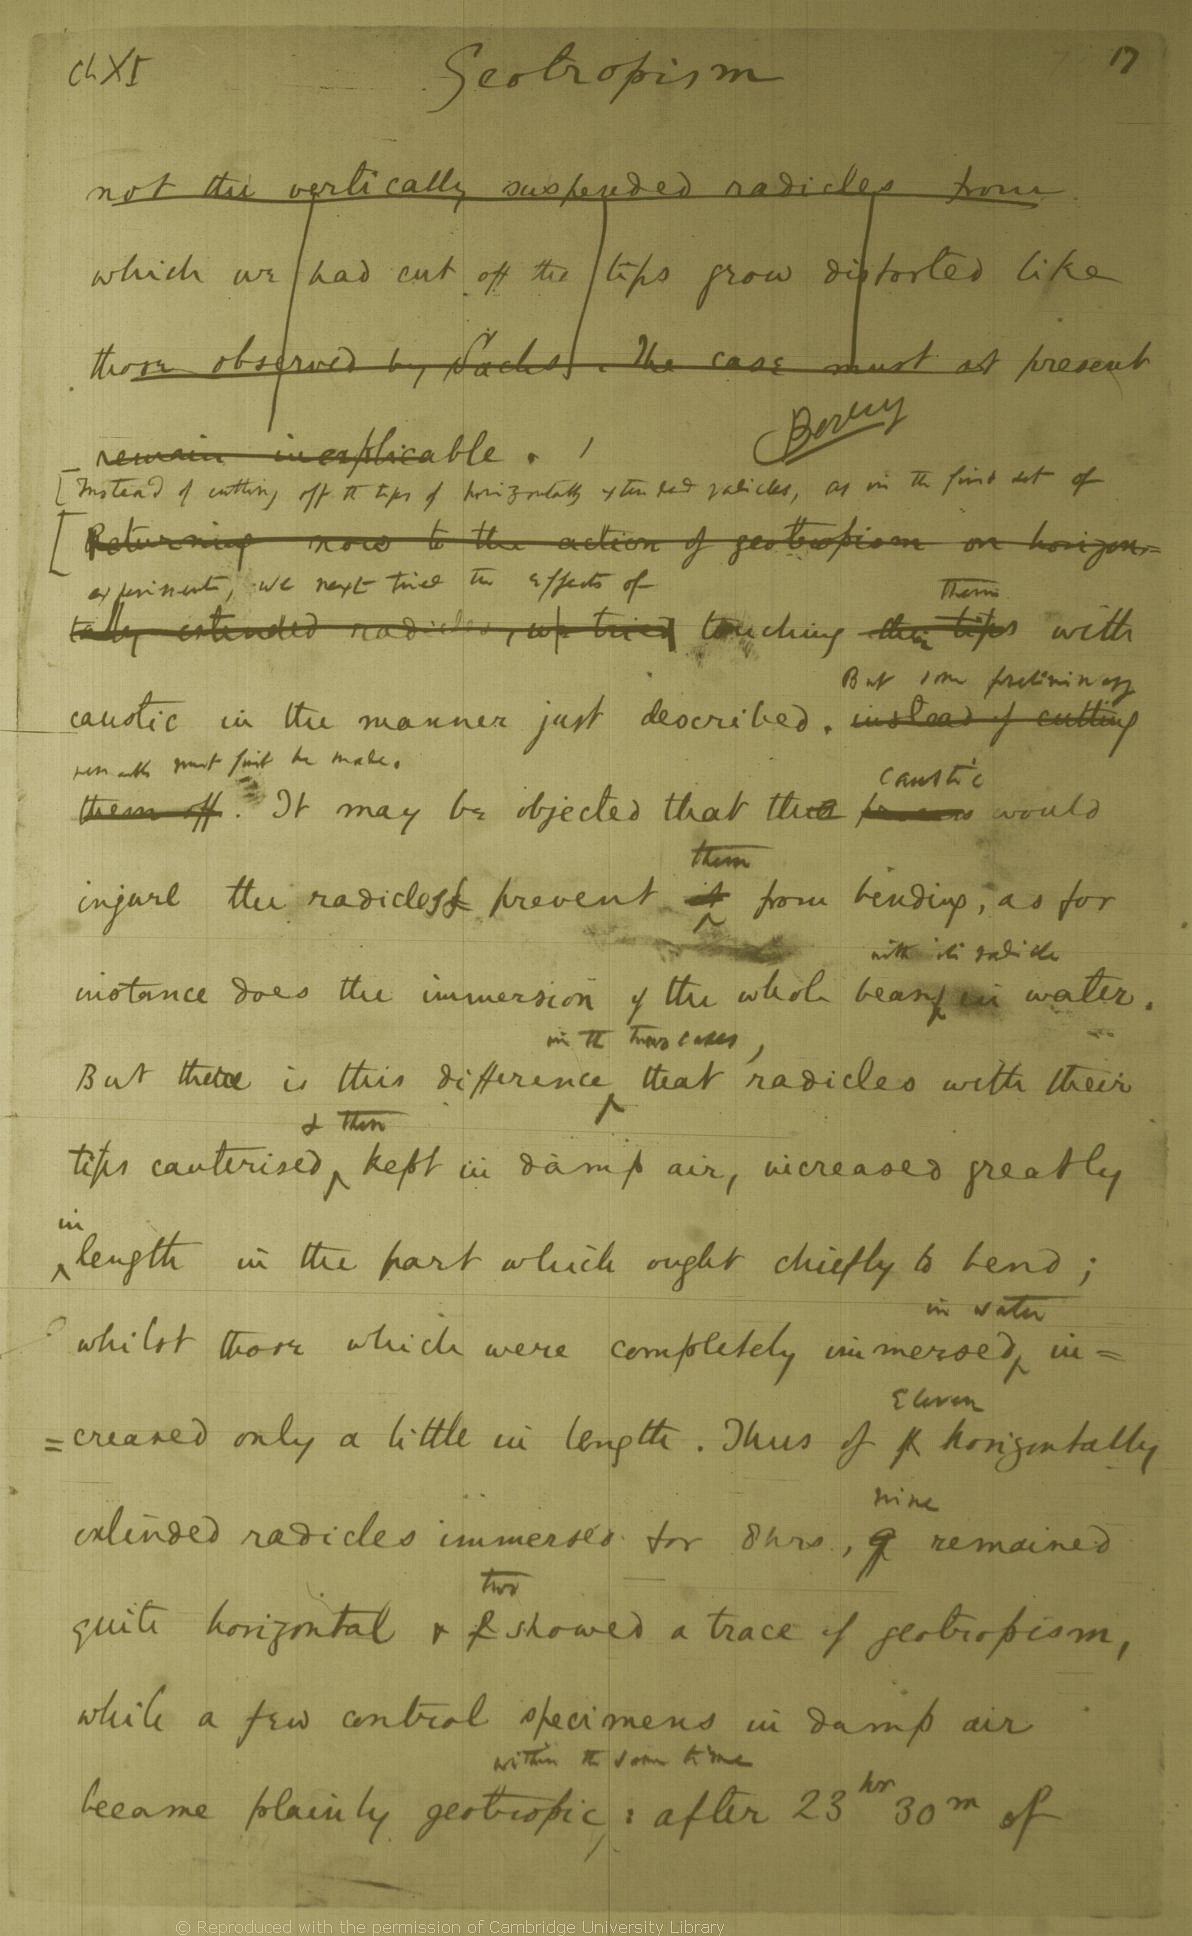 Ch XI Geotropism 17
not the vertically suspended radicles from
which we had cut off the tips grow distorted like
those observed by Sachs. The case must at present
remain inexplicable.
Instead of cutting off the tips of horizontally extended radicles, as in the first set of
[Returning now to the action of geotropism on horizon=
experiments, we next tried the effects of
them
tally extended radicles, we tried touching their tips with
But some preliminary
caustic in the manner just described. instead of cutting
remarks must first be made.
caustic
them off. It may be objected that the process would
them
injure the radicles & prevent it from bending, as for
with its radicle
instance does the immersion of the whole bean in water.
in the two cases,
But there is this difference that radicles with their
& then
tips cauterised, kept in damp air, increased greatly
in
length in the part which ought chiefly to bend;
in water
whilst those which were completely immersed, in=
Eleven
=creased only a little in length. Thus of horizontally
nine
extended radicles immersed for 8 hrs., 9 remained
two
quite horizontal & 2 showed a trace of geotropism,
while a few control specimens in damp air
within the same time
became plainly geotropic; : after 23hr 30m of
© Reproduced with the permission of Cambridge University Library